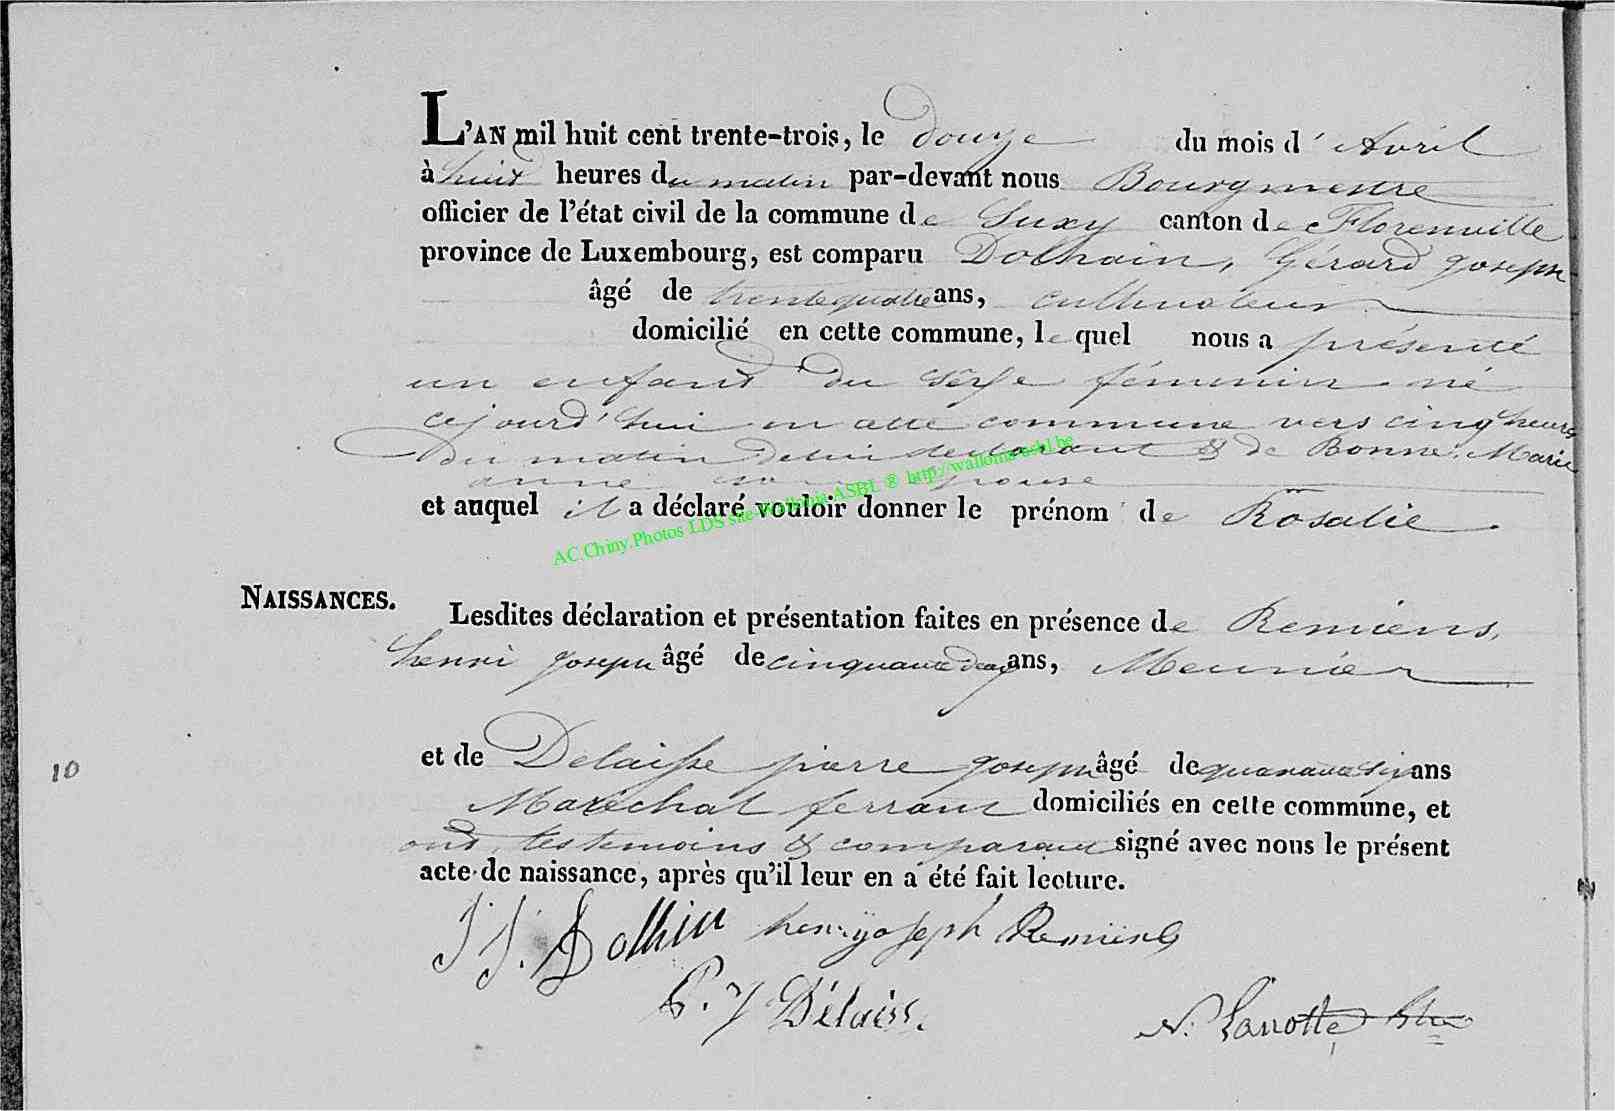 L'AN mil huit cent trente-trois, le douze du mois d'Avril
à huit heures du matin par-devant nous Bourgmestre
officier de l'état civil de la commune de Suxy canton de Florenville
province de Luxembourg, est comparu Dolhain, Gérard joseph
âgé de trente quatre ans, cultivateur
domicilié en cette commune, le quel nous a présenté
un enfant du sexe féminin né
cejourd'hui en cette commune vers cinq heures
du matin de lui declarant & de Bonne, Marie
anne son épouse
et auquel il a déclaré vouloir donner le prénom de Rosalie.
AC.Chiny.Photos LDS site Wallonia ASBL ® http://wallonia-asbl.be
NAISSANCES.
Lesdites déclaration et présentation faites en présence de Remiens,
henri joseph âgé de cinquante deux ans, Meunier
10
et de Delaisse pierre joseph âgé de quarante six ans
Maréchal ferrant domiciliés en cette commune, et
ont, les temoins & comparant signé avec nous le présent
acte de naissance, après qu'il leur en a été fait lecture.
J J. Dolhin henry joseph Remiens
P. J Délaiss.
N. Lanotte